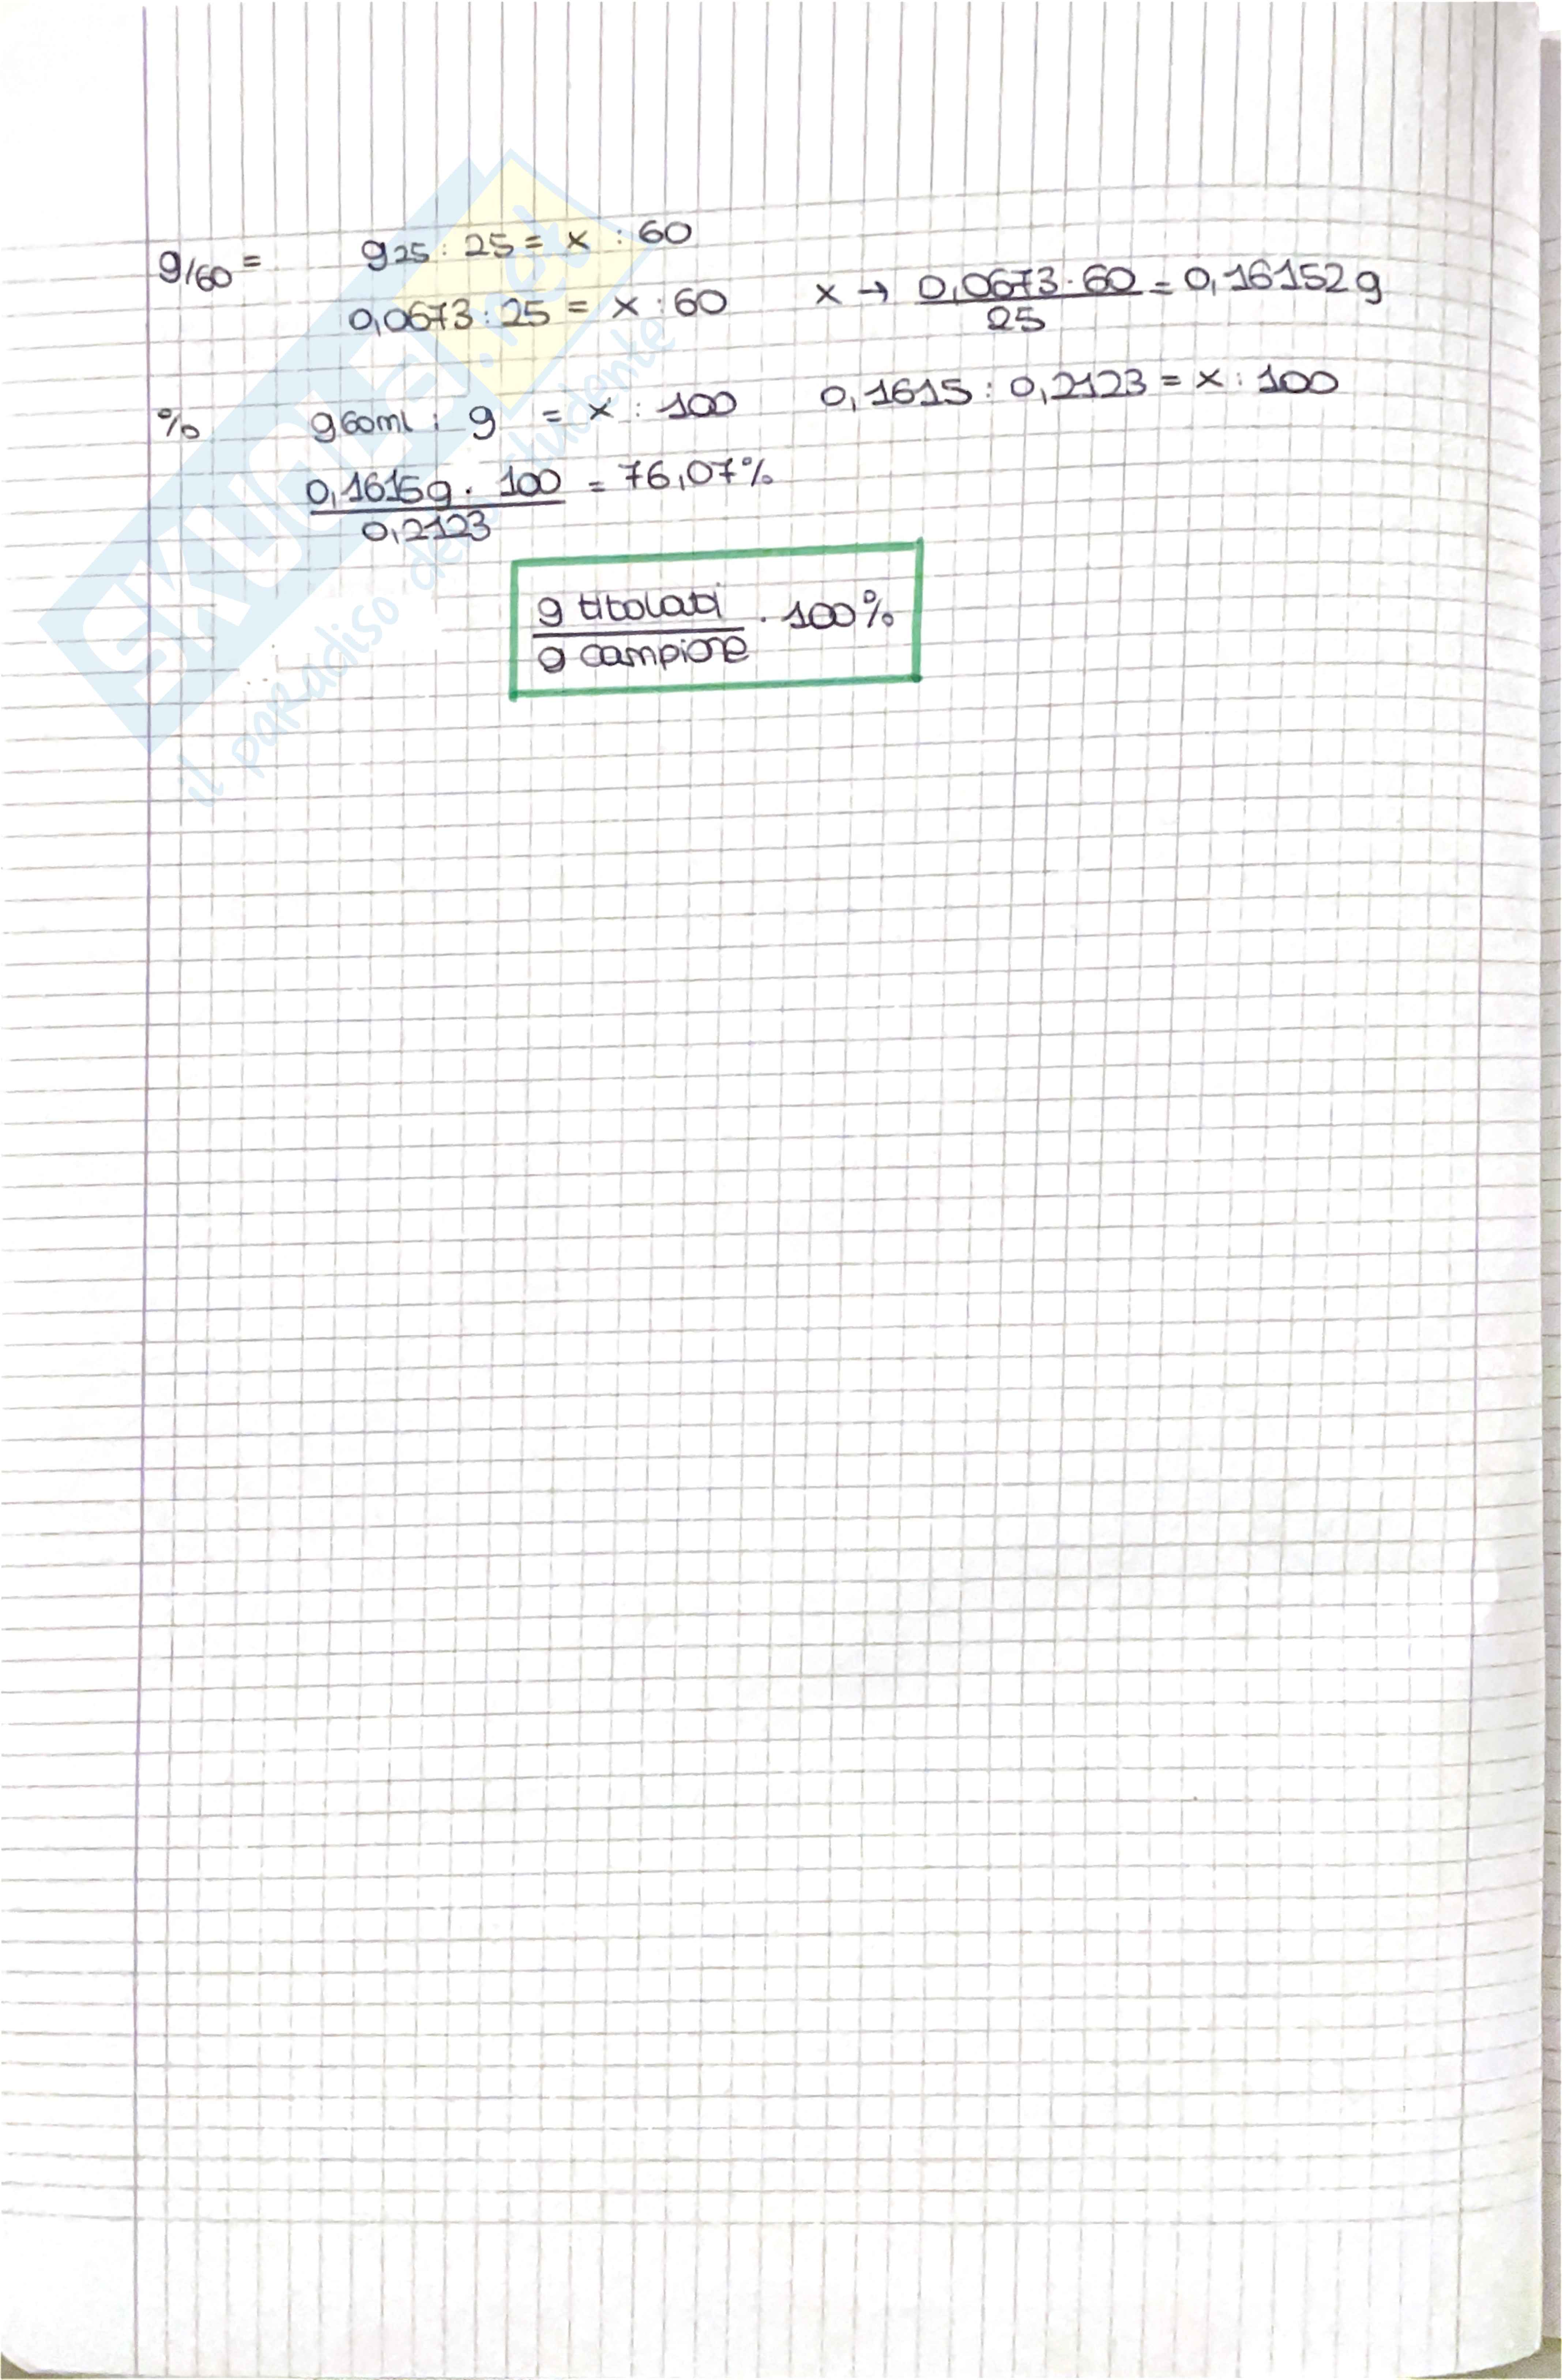 g/60 = g25 : 25 = x : 60
0,0673 : 25 = x : 60 x → 0,0673 · 60 / 25 = 0,16152 g
% g60ml : g = x : 100 0,1615 : 0,2123 = x : 100
0,1615g · 100 / 0,2123 = 76,07%
g titolati / g campione · 100%
SKUOLA.net
il paradiso dello studente